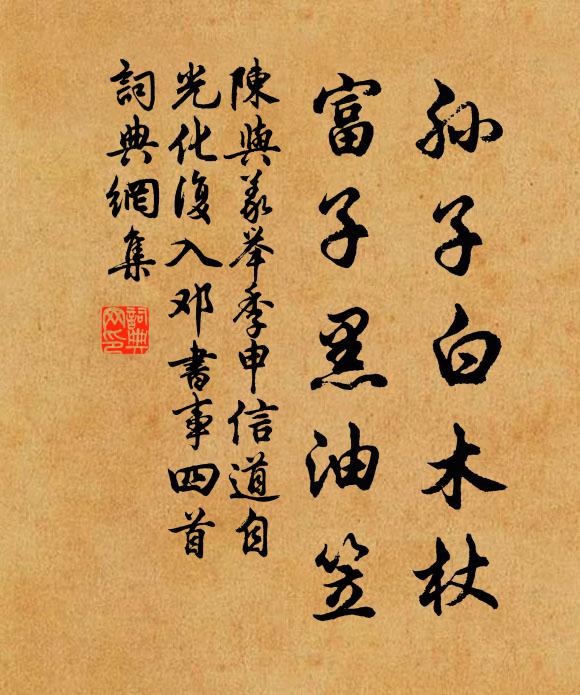 孙子白木杖
富子黑油笠
陳與義举季申信道自
光化復入邓書事四首
詞典網集
詞典网印